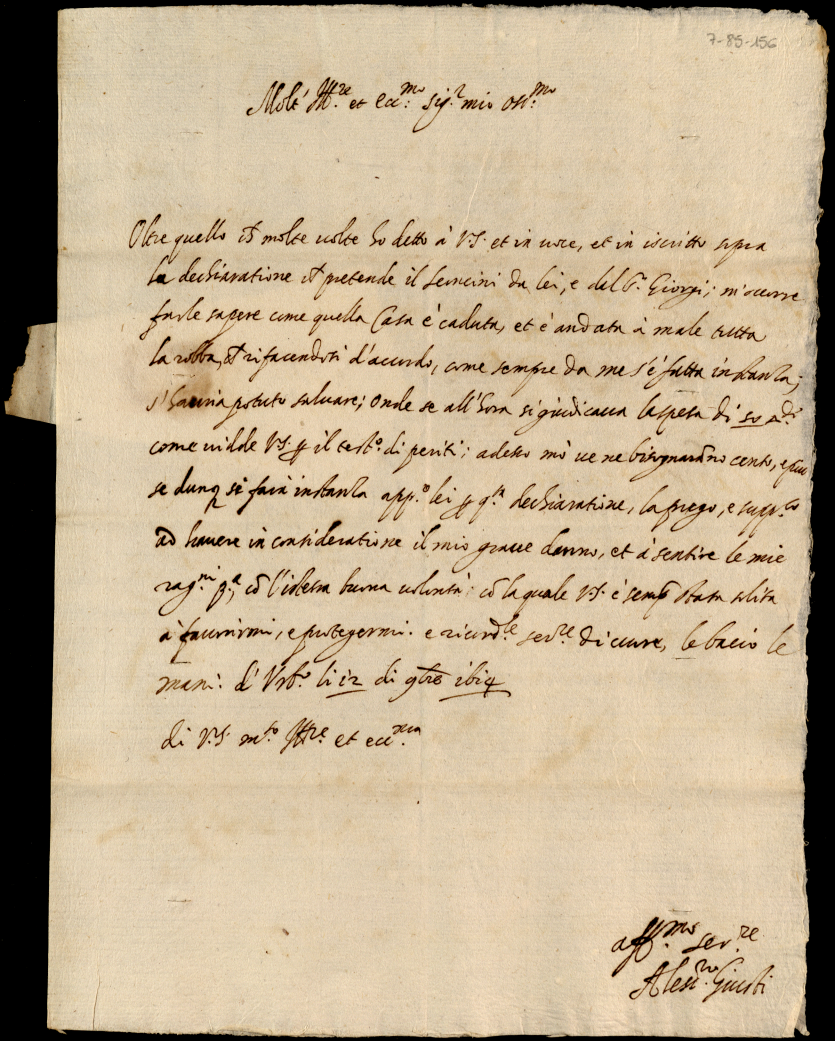 7-85-156
Molt' Ill.re et ecc.mo sig.r mio oss.mo
Oltre quello ch molte uolte ho detto à V.S. et in uoce, et in iscritto sopra
la dechiaratione ch pretende il lei, e dal S.r Giorgi; m'occorre
farle sapere come quella Casa è caduta, et è andata à male tutta
la robba, ch rifacendosi d'accordo, come sempre da me s'è fatta instanza;
s'hauria potuto saluare; Onde se all'hora si giudicaua la spesa di 50 
come uidde V.S. p il test.o di periti; adesso mò ue ne bisognaranno cento, e piu
se dunq si farà instanza app.o lei p q.ta dechiaratione, la prego, e supp.co
ad hauere in consideratione il mio graue danno, et à sentire le mie
rag.ni p.a, cō l'istessa buona uolontà; cō la quale V.S. è semp stata solita
à fauorirmi, e protegermi. e ricord.le ser.re di cuore, le bacio le
mani. d'Urb.o li 12 di 9bre 1614
di V.S. m.to Ill.re et ecc.ma
aff.mo ser.re
Giusti